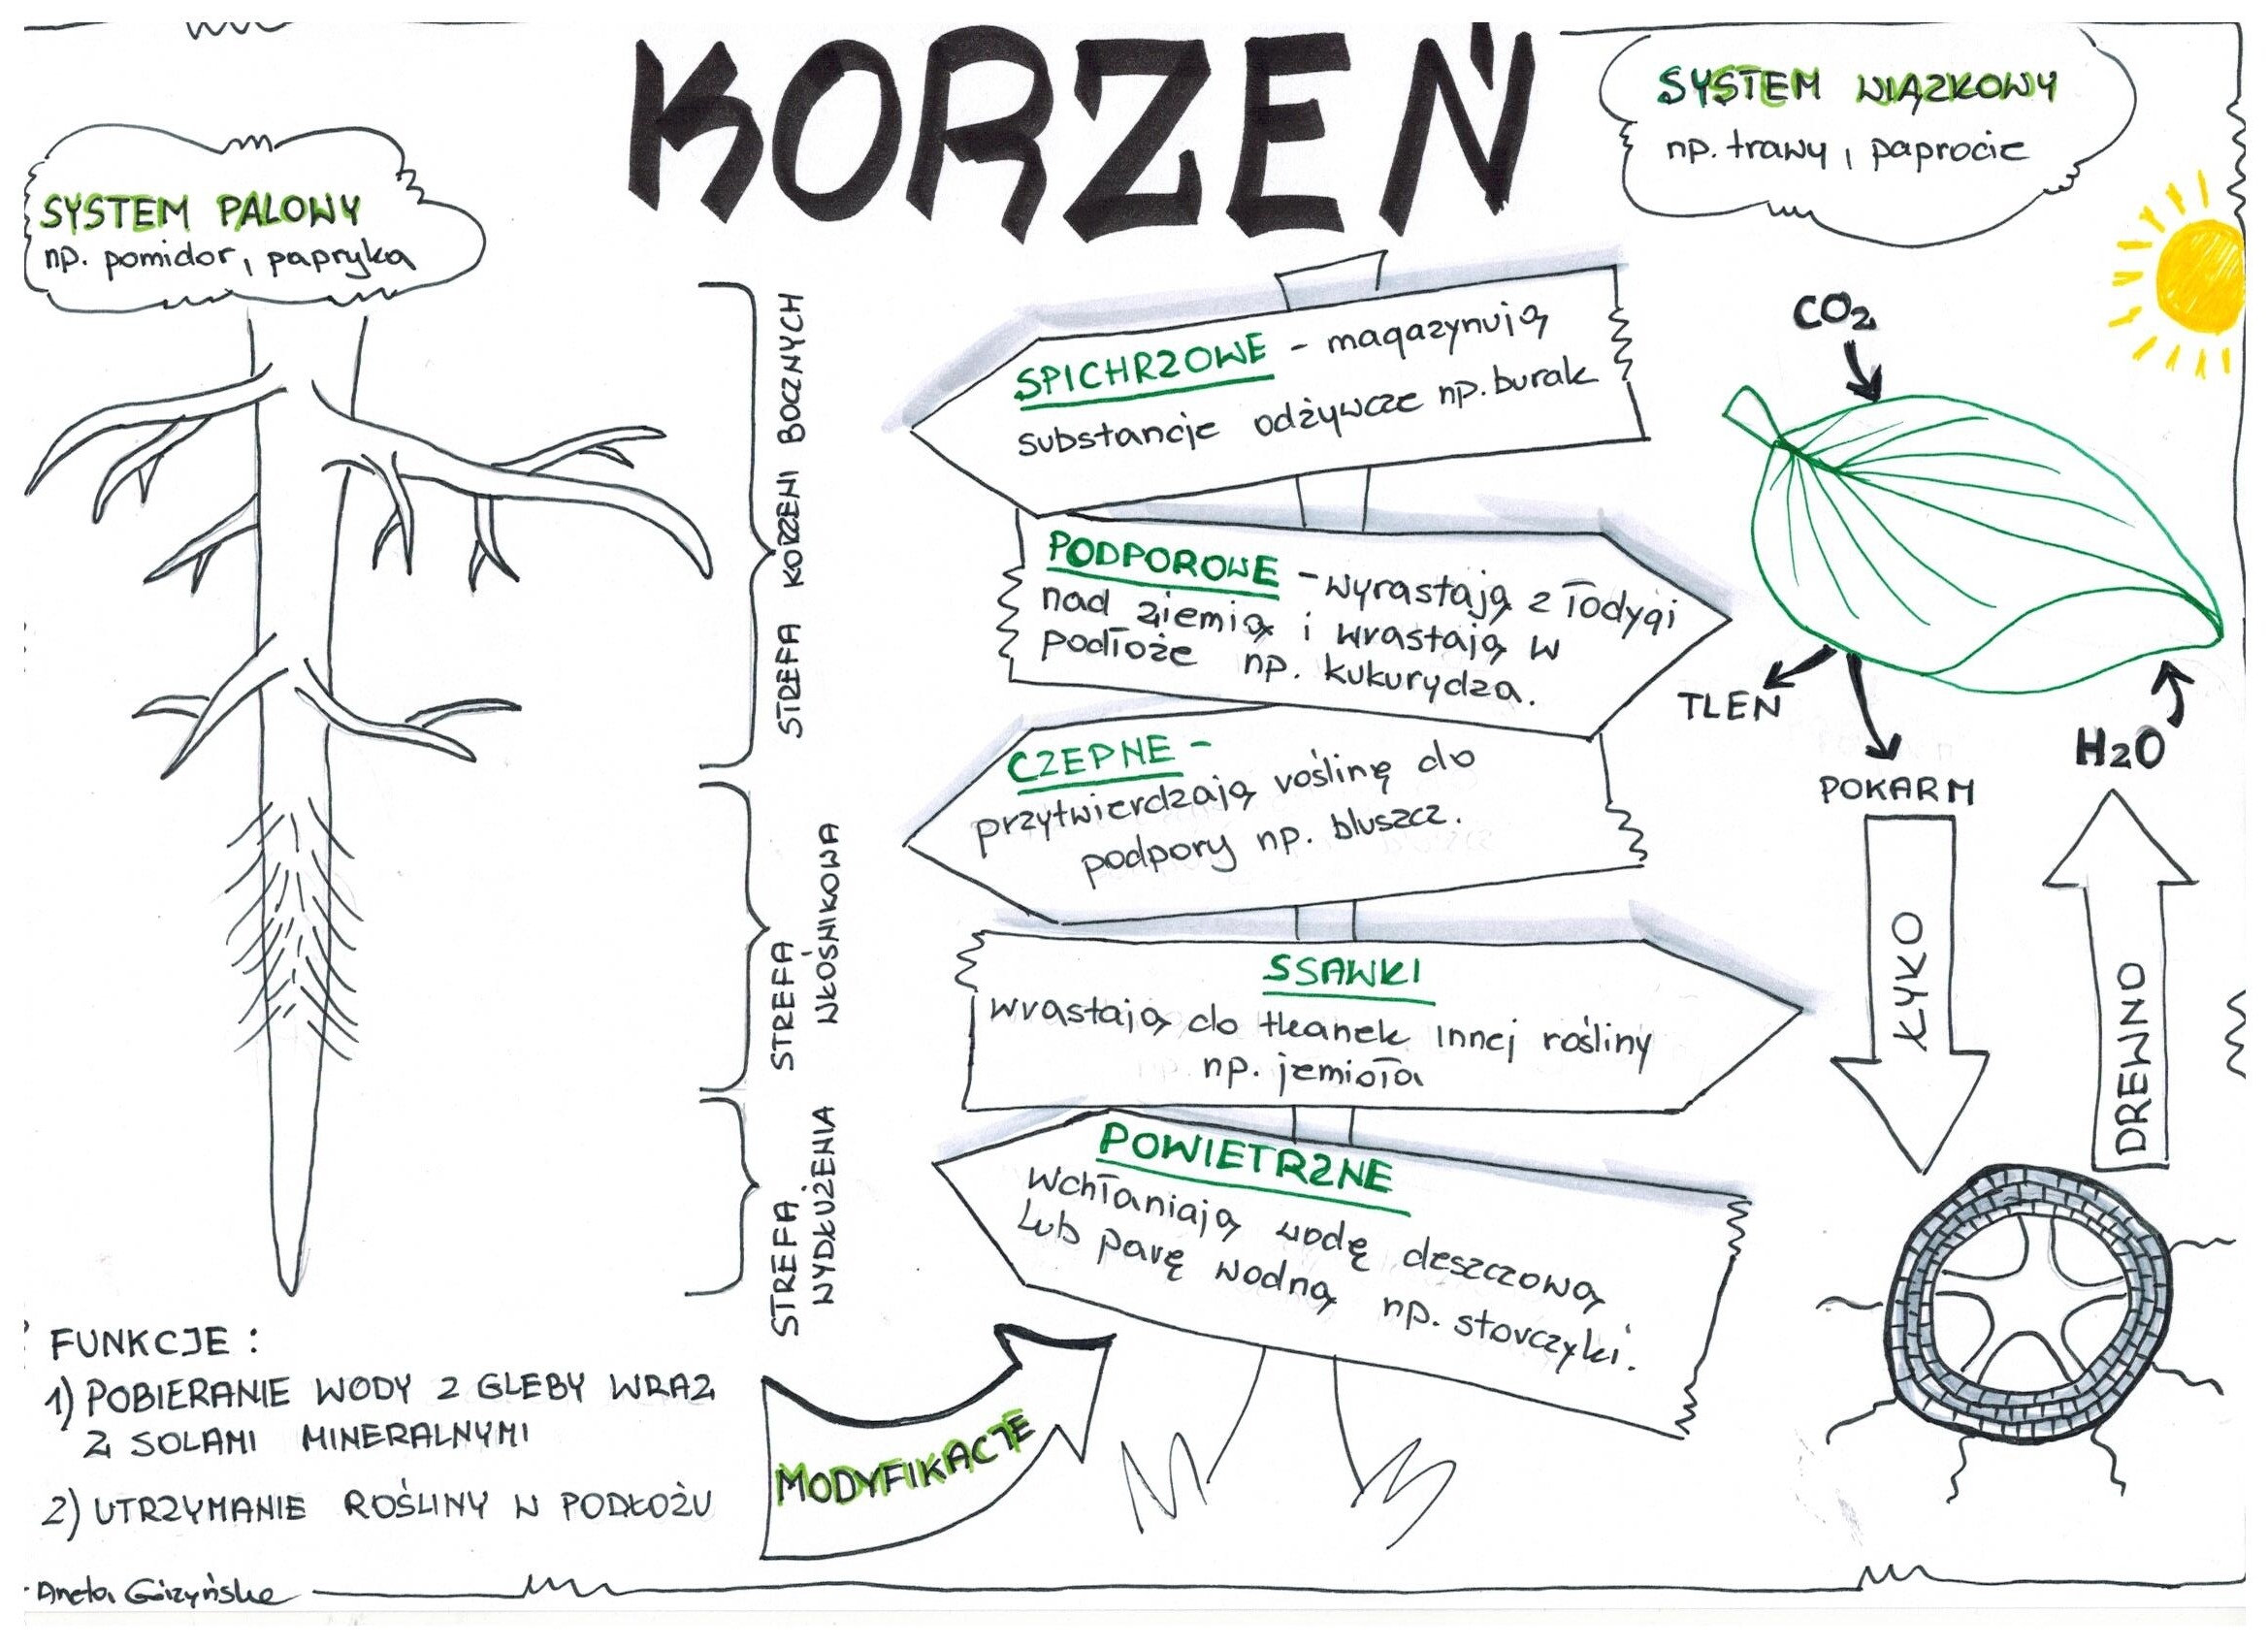 KORZEŃ
SYSTEM WIĄZKOWY
np. trawy, paprocie
SYSTEM PALOWY
np. pomidor, papryka
STREFA KORZENI BOCZNYCH
STREFA
WŁOŚNIKOWA
STREFA
WYDŁUŻENIA
SPICHRZOWE - magazynują
substancje odżywcze np. burak
PODPOROWE - wyrastają z łodygi
nad ziemią i wrastają w
podłoże np. kukurydza.
CZEPNE -
przytwierdzają roślinę do
podpory np. bluszcz.
SSAWKI
wrastają do tkanek innej rośliny
np. jemioła
POWIETRZNE
wchłaniają wodę deszczową
lub parę wodną np. storczyki.
MODYFIKACJE
CO2
TLEN
POKARM
H2O
ŁYKO
DREWNO
FUNKCJE:
1) POBIERANIE WODY Z GLEBY WRAZ
Z SOLAMI MINERALNYMI
2) UTRZYMANIE ROŚLINY W PODŁOŻU
Aneta Giżyńska